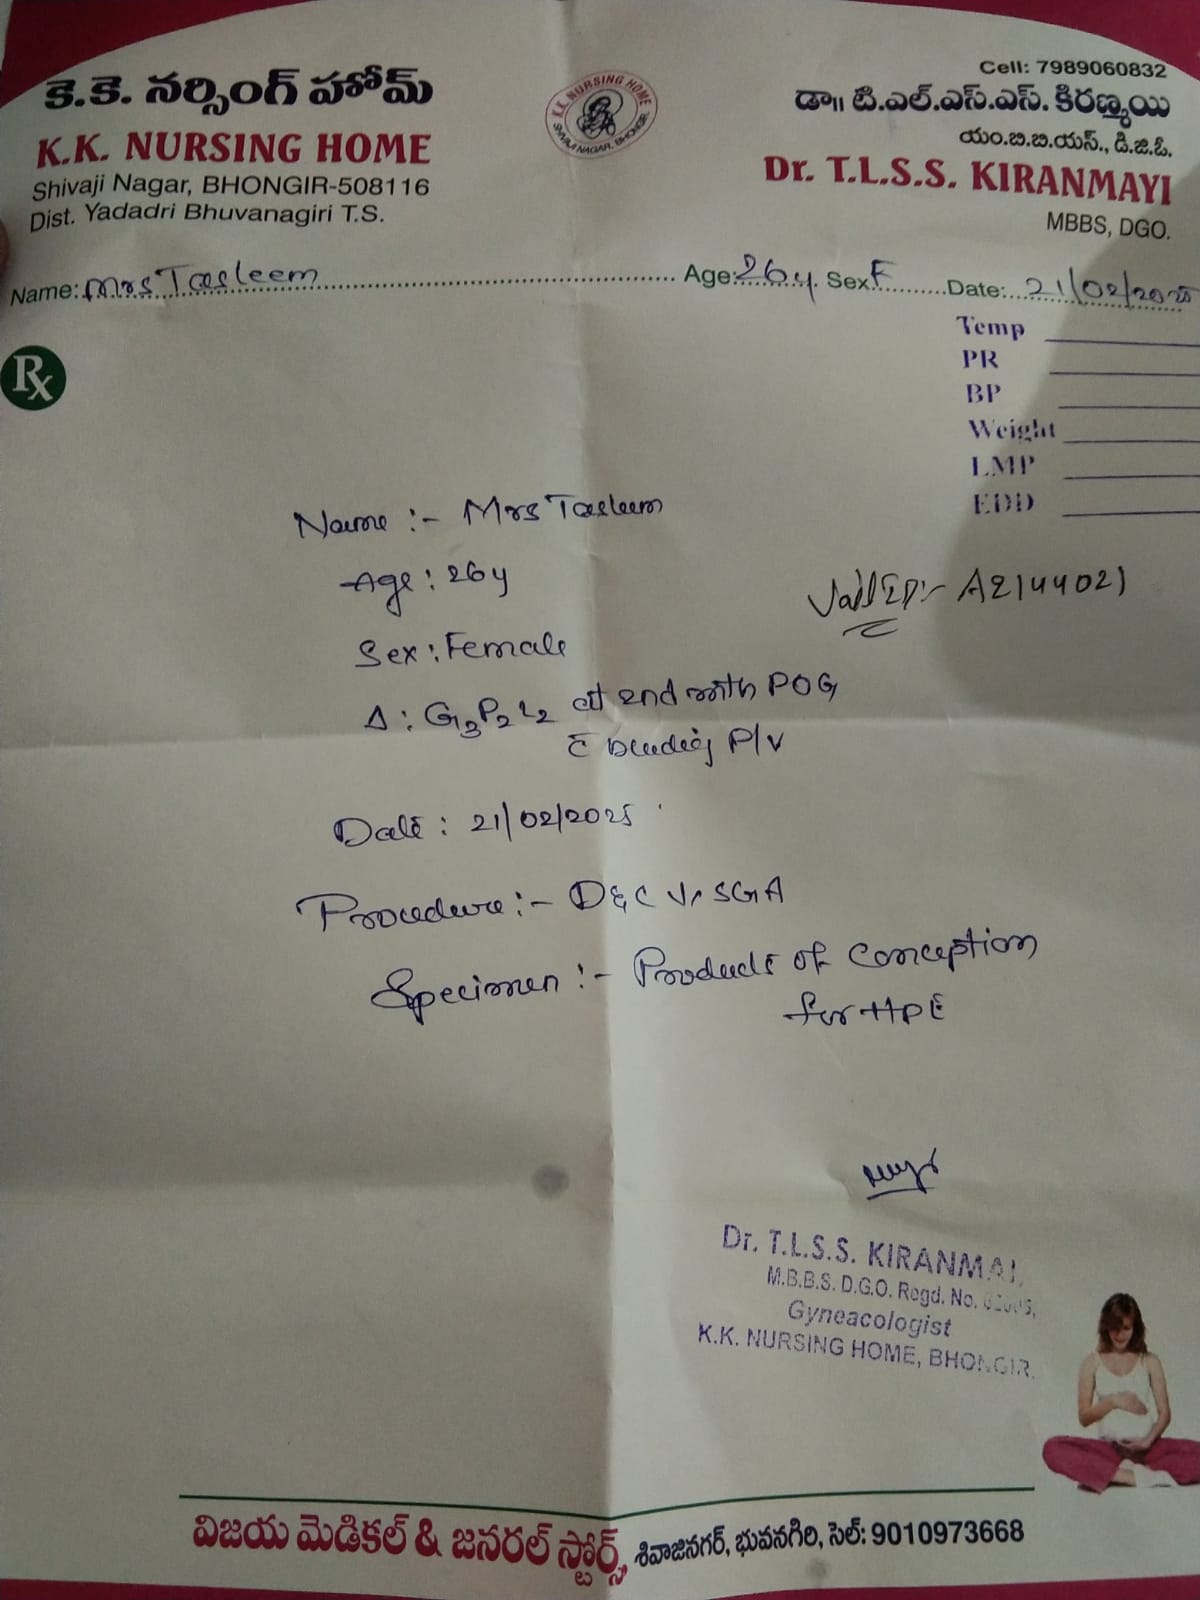 కె.కె. నర్సింగ్ హోమ్
K.K. NURSING HOME
Shivaji Nagar, BHONGIR-508116
Dist. Yadadri Bhuvanagiri T.S.
K.K. NURSING HOME
SHIVAJI NAGAR, BHONGIR.
Cell: 7989060832
డా|| టి.ఎల్.ఎస్.ఎస్. కిరణ్మయి
యం.బి.బి.యస్., డి.జి.ఓ.
Dr. T.L.S.S. KIRANMAYI
MBBS, DGO.
Name: Mrs Tasleem Age: 26y Sex F Date: 21/02/2025
Rx
Temp
PR
BP
Weight
LMP
EDD
Name :- Mrs Tasleem
Age : 26y
A2144021
Sex : Female
Δ : G3P2L2 at 2nd mnth POG
c̄ bleeding P/V
Date : 21/02/2025
Procedure :- D&C SGA
Specimen :- Products of conception
for HPE
Dr. T.L.S.S. KIRANMAI,
M.B.B.S. D.G.O. Regd. No.
Gyneacologist
K.K. NURSING HOME, BHONGIR.
విజయ మెడికల్ & జనరల్ స్టోర్స్, శివాజినగర్, భువనగిరి, సెల్: 9010973668